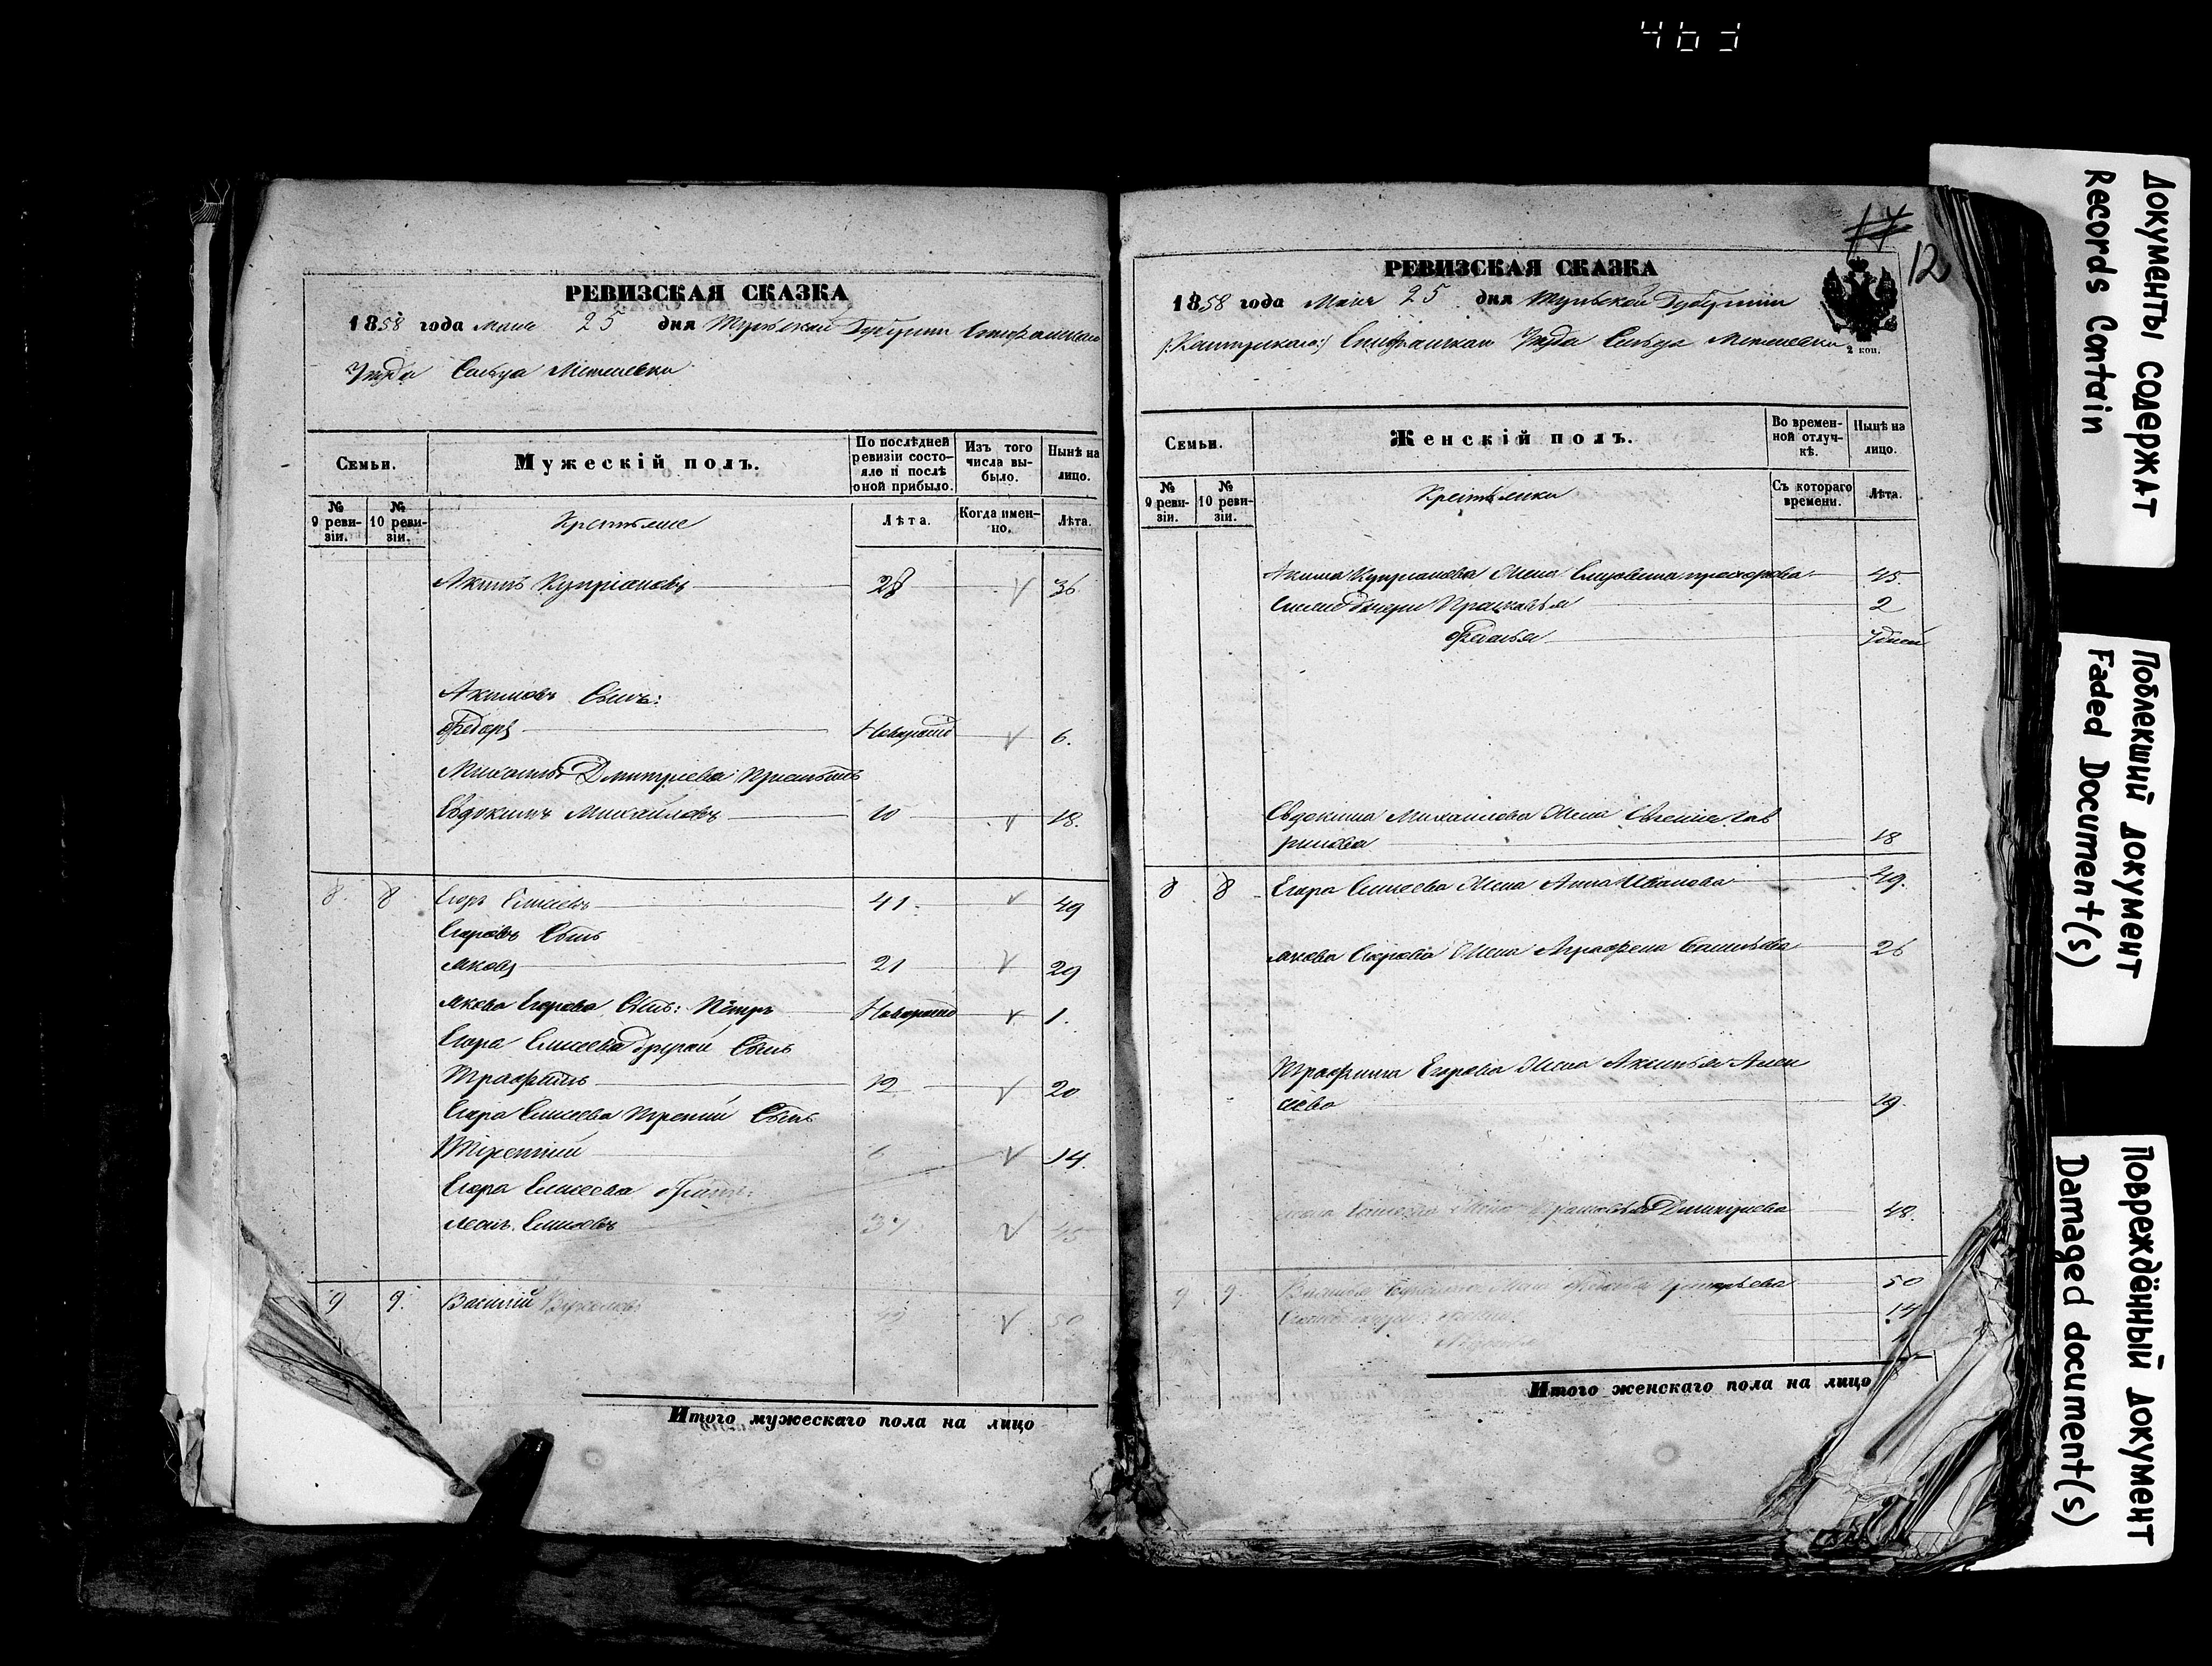 463
РЕВИЗСКАЯ СКАЗКА
1858 года Маия 25 дня Тульской Губернии Епифанскаго
Уѣзда Сельца
Семьи.
Мужескій полъ.
По послѣдней ревизіи состояло и послѣ оной прибыло.
Изъ того числа выбыло.
Нынѣ на лицо.
№ 9 ревизіи.
№ 10 ревизіи.
Крестьяне
Лѣта.
Когда именно.
Лѣта.
Акимъ Купріановъ 28 36
Акимовъ Сынъ:
Федоръ Новорожд 6.
Михаилы Дмитріева
Евдокимъ Михайловъ 10 18.
8. 8 Егоръ Елисѣевъ 41. 49
Егоровъ Сынъ
Яковъ 21 29
Якова Егорова Сынъ: Петръ Новорожд 1.
Егора Елисеева другой Сынъ
Трафимъ 12 20
Егора Елисеева третій Сынъ
Терентий 6 14.
Егора Елисеева братъ:
Елисеевъ 37 45
9 9. Василій 50
Итого мужескаго пола на лицо
17
12
РЕВИЗСКАЯ СКАЗКА
2 коп.
1858 года Маия 25 дня Тульской Губернии
Епифанскаго Уѣзда Сельца
Семьи.
Женскій полъ.
Во временной отлучкѣ.
Нынѣ на лицо.
№ 9 ревизіи.
№ 10 ревизіи.
Крестьянки
Съ котораго времени.
Лѣта.
Акима Купріанова Жена 45.
дочери Прасковья 2
7 дней
Евдокима Михаилова Жена Евгения Гав
рилова 18
8 8 Егора Елисеева Жена Анна Иванова 49.
Якова Егорова Жена Аграфена 26
Трафима Егорова Жена Акилина Алек
сеева 19.
Жена Дмитриева 48.
9 9. Жена Григорьева 50
14
Итого женскаго пола на лицо
Документы содержат
Records Contain
Поблекший документ
Faded Document(s)
Повреждённый документ
Damaged document(s)